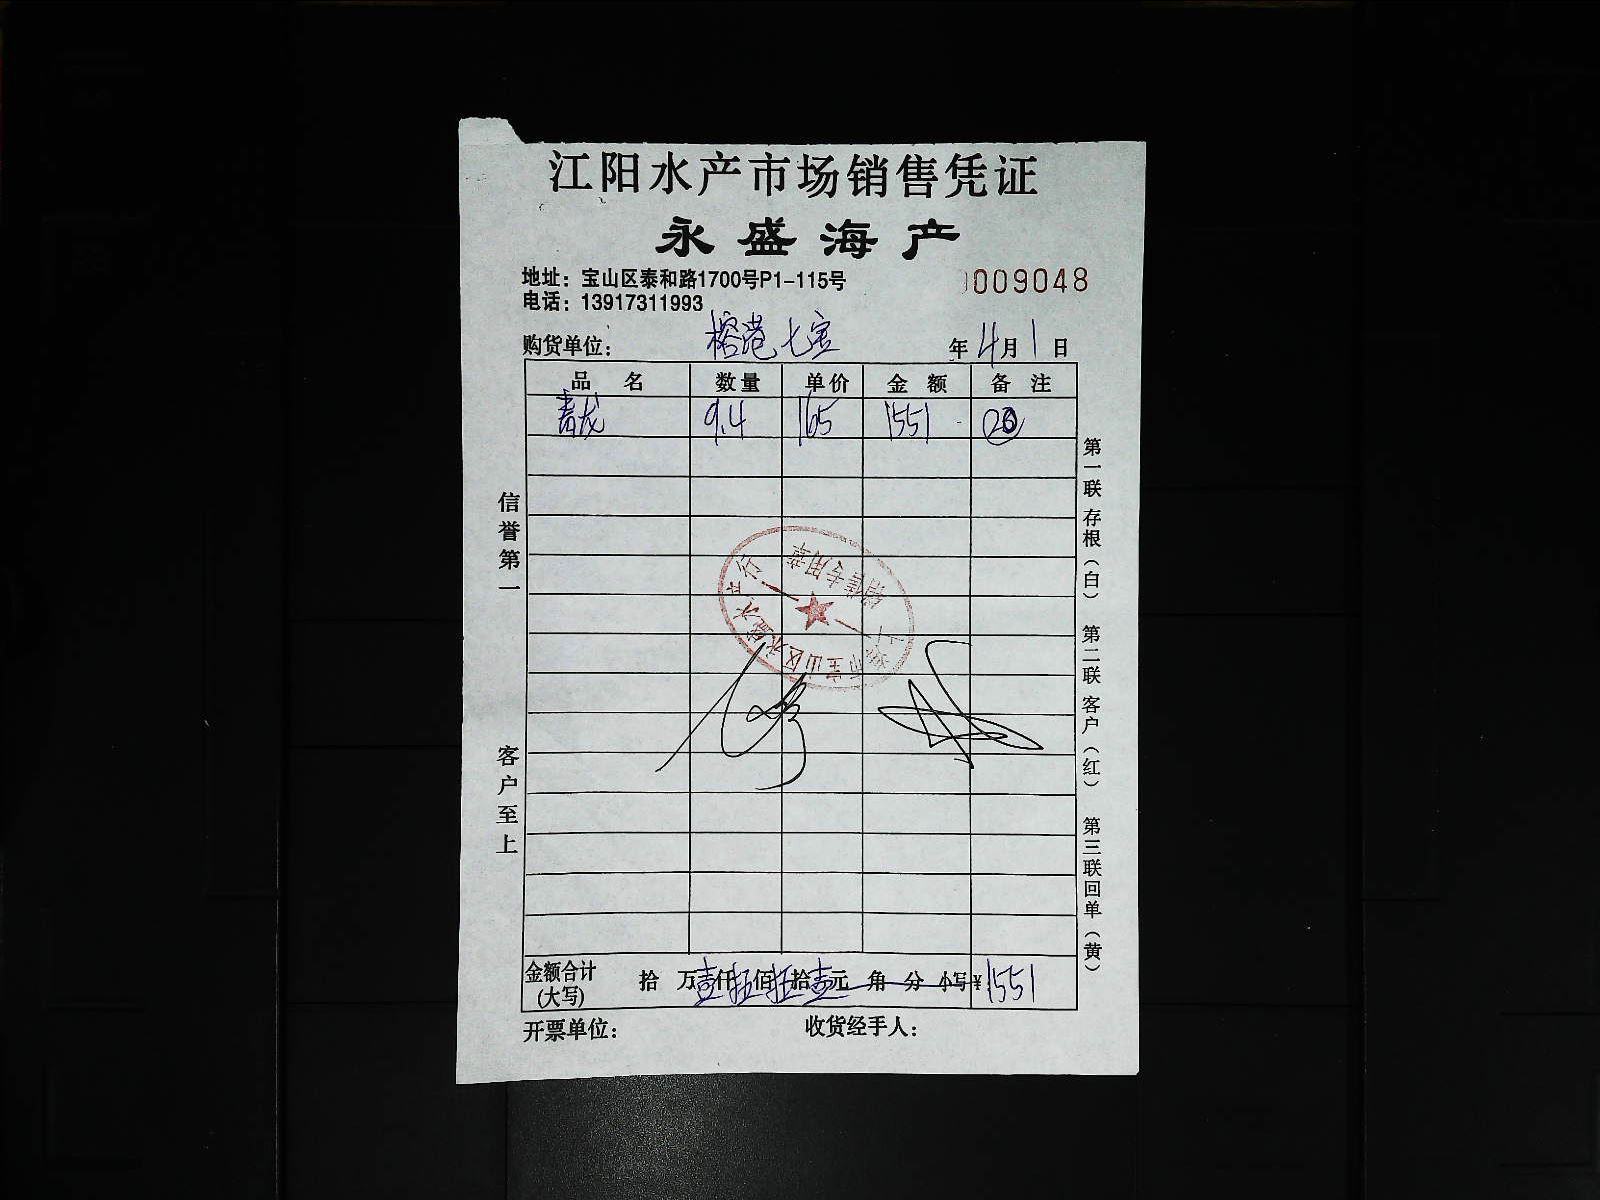 江阳水产市场销售凭证
永盛海产
地址：宝山区泰和路1700号P1-115号
电话：13917311993
0009048
购货单位：榕港七宝 年4月1日
品名 数量 单价 金额 备注
青龙 9.4 165 1551
信誉第一
客户至上
第一联 存根（白） 第二联 客户（红） 第三联 回单（黄）
销售专用章
金额合计（大写） 拾 万壹仟伍佰伍拾壹元 角 分 小写¥1551
开票单位： 收货经手人：